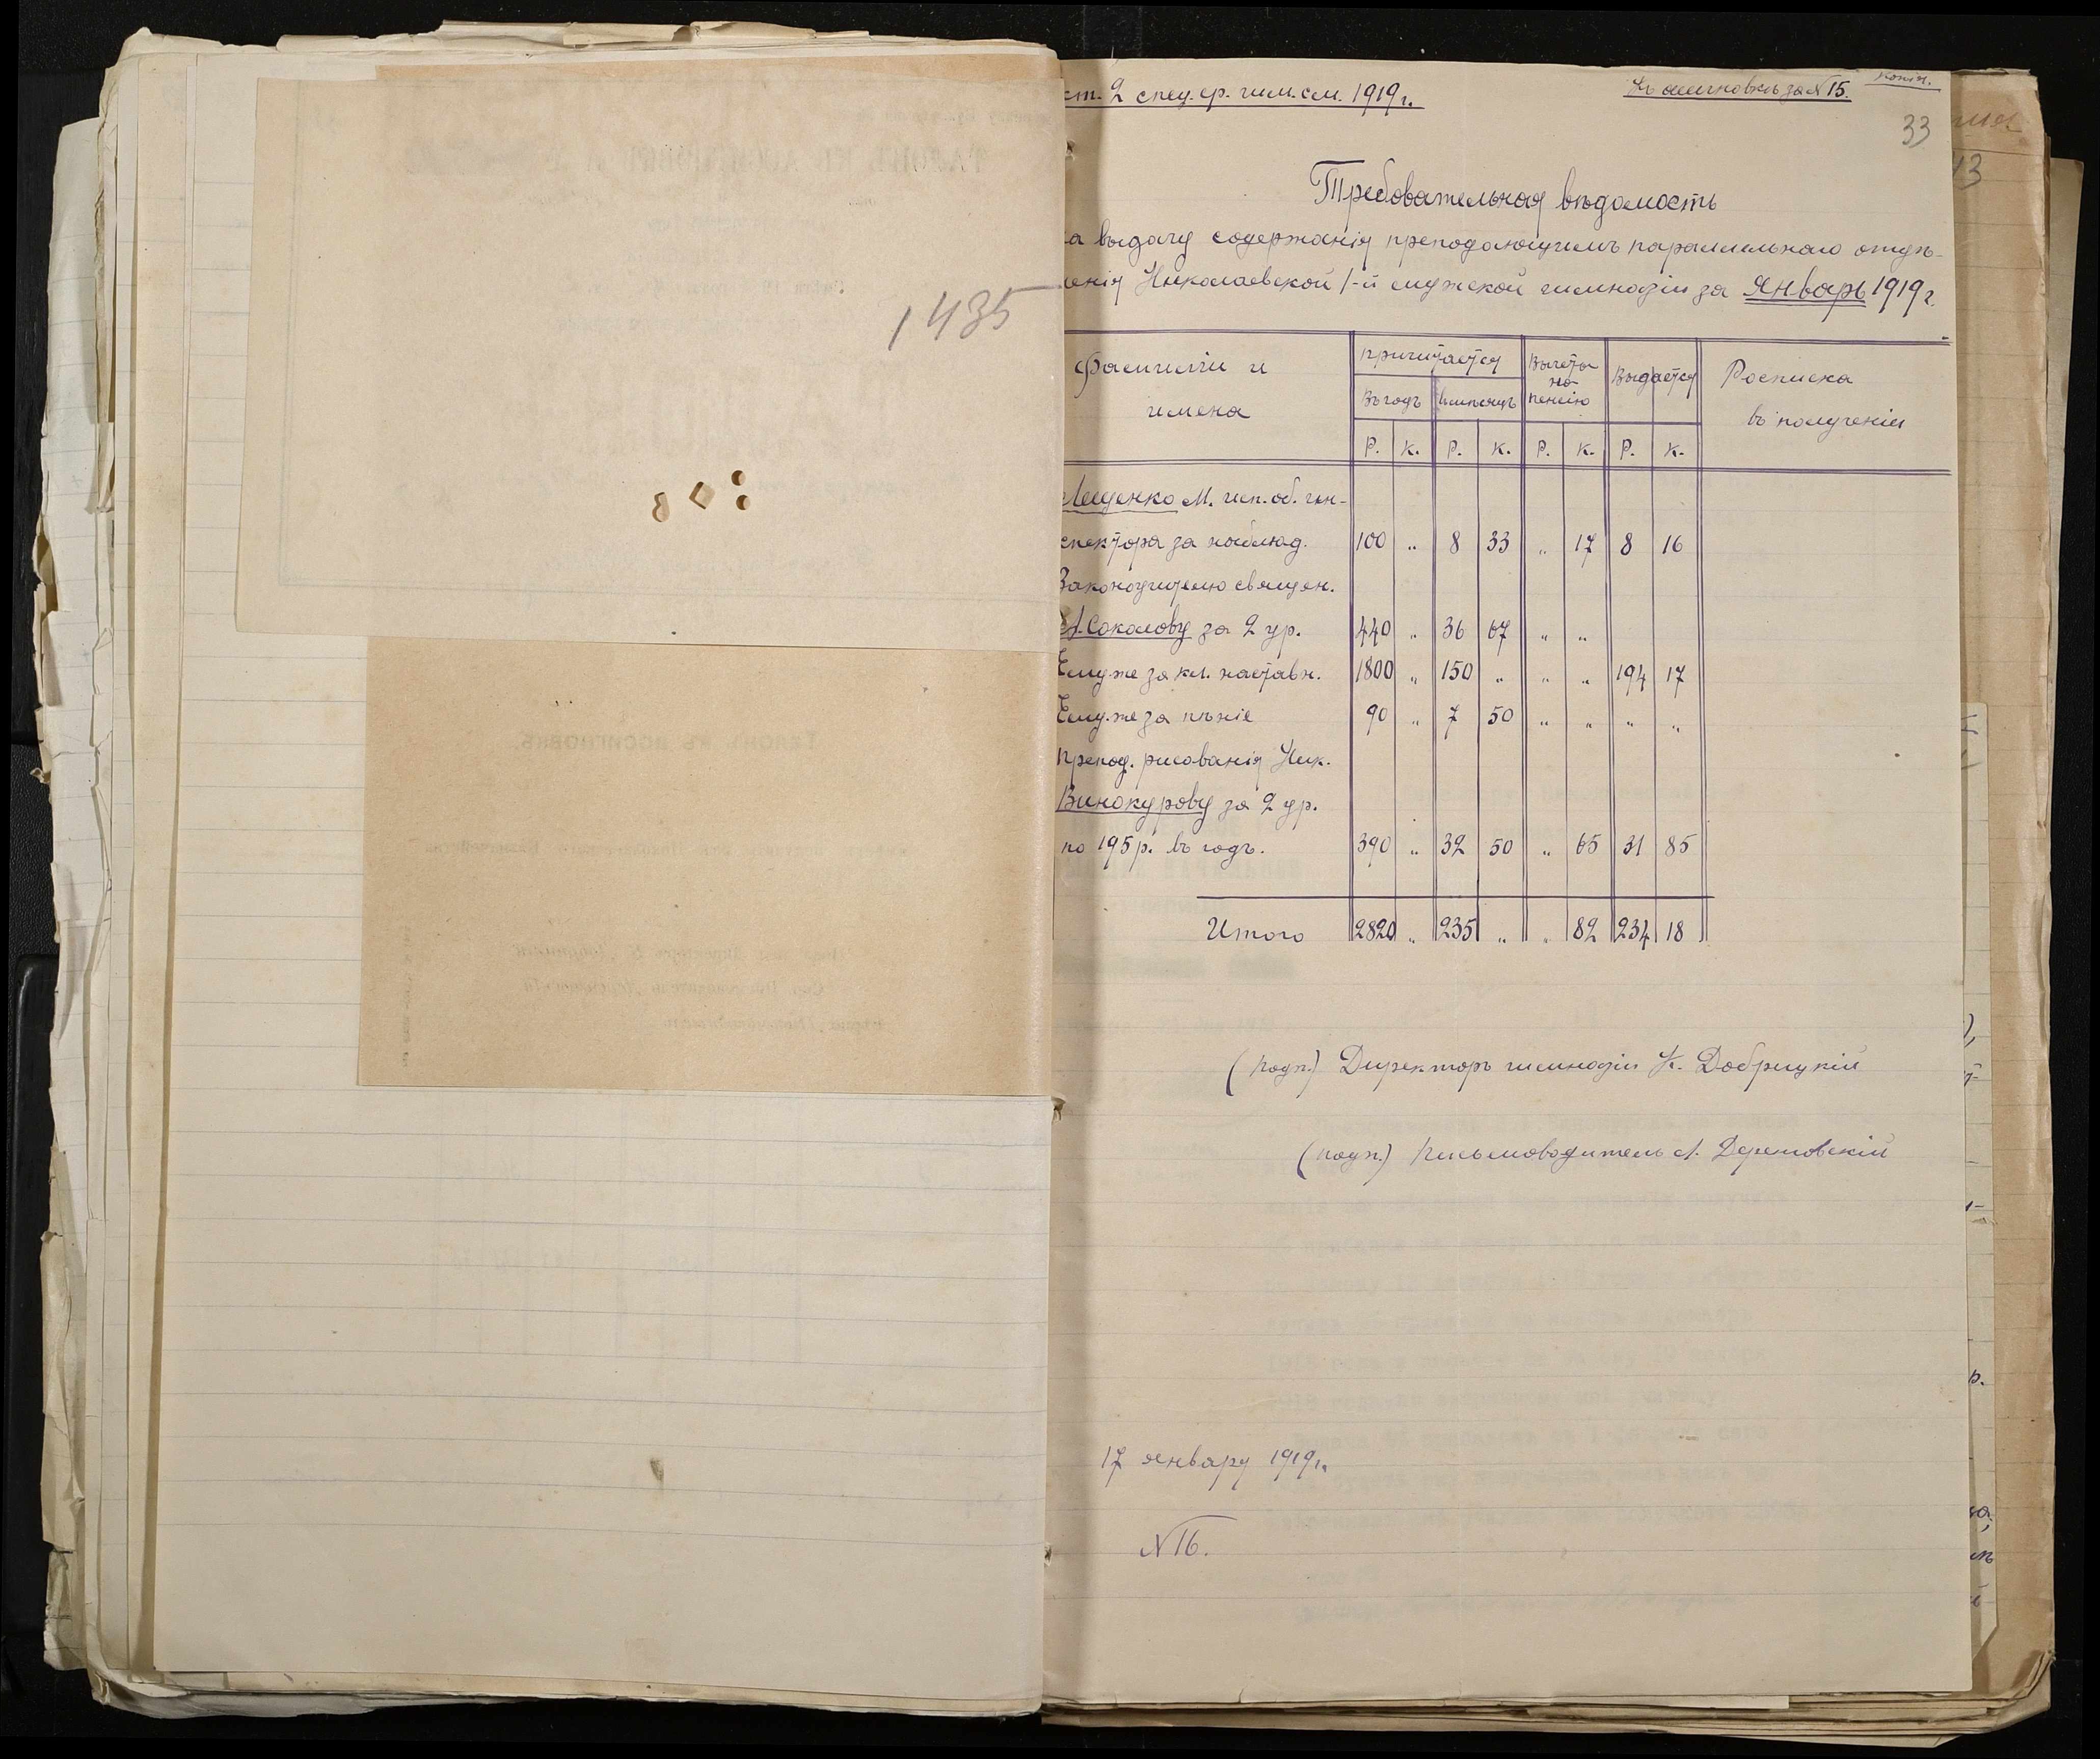 1435
ст. 2 спец. ср. гим. см. 1919 г.
Къ ассигновкѣ за №15.
копія.
33
Требовательная вѣдомость
а выдачу содержанія преподающимъ параллельнаго отдѣ-
ленія Николаевской 1-й мужской гимназіи за Январь 1919 г.
Фамиліи и имена
Причитается
Въ годъ
Въ мѣсяцъ
Вычеты на пенсію
Выдается
Росписка въ полученіи
Р. К. Р. К. Р. К. Р. К.
Лещенко М. исп. об. ин-
спектора за наблюд. 100 „ 8 33 „ 17 8 16
Законоучителю священ.
А. Соколову за 2 ур. 440 „ 36 67 „ „
Ему же за кл. наставн. 1800 „ 150 „ „ „ 194 17
Ему же за пѣніе 90 „ 7 50 „ „ „ „
Препод. рисованія Ник.
Винокурову за 2 ур.
по 195 р. въ годъ. 390 „ 32 50 „ 65 31 85
Итого 2820 „ 235 „ „ 82 234 18
(подп.) Директоръ гимназіи К. Добрицкій
(подп.) Письмоводитель А.
17 январу 1919 г.
№ 16.
13